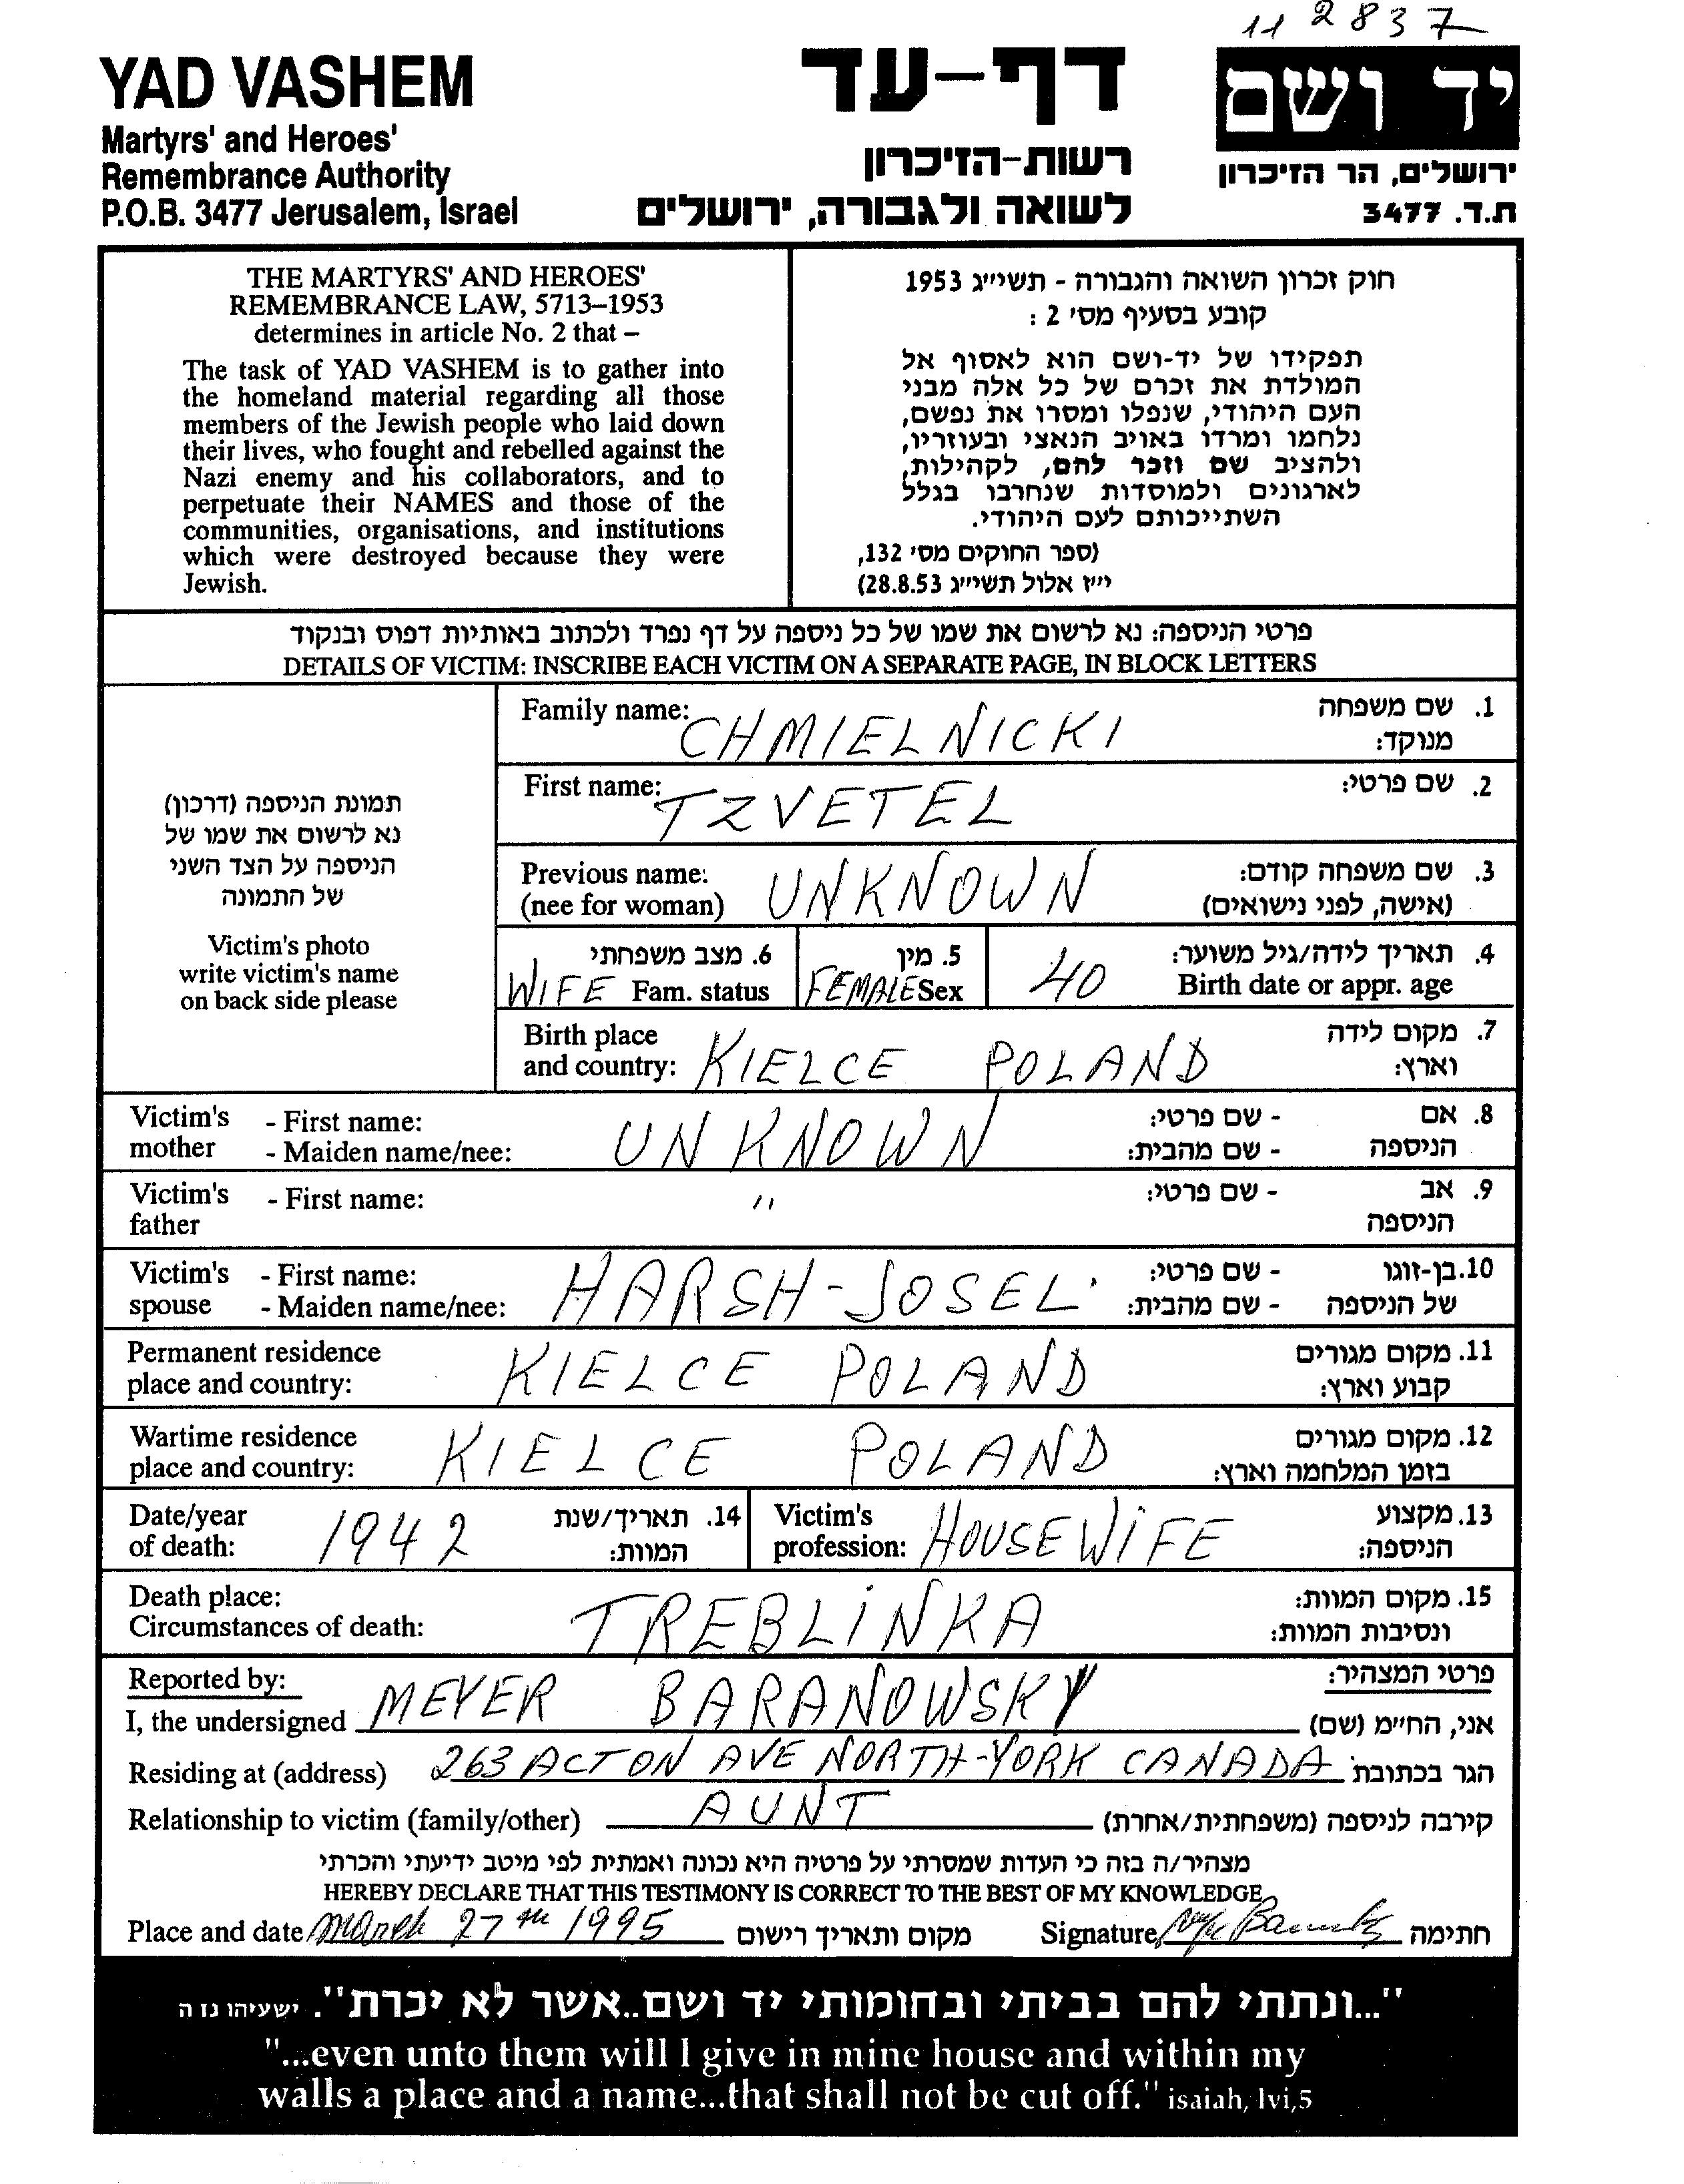 11 2837
YAD VASHEM
Martyrs' and Heroes'
Remembrance Authority
P.O.B. 3477 Jerusalem, Israel
דף-עד
רשות-הזיכרון
לשואה ולגבורה, ירושלים
יד ושם
ירושלים, הר הזיכרון
ת.ד. 3477
THE MARTYRS' AND HEROES'
REMEMBRANCE LAW, 5713–1953
determines in article No. 2 that –
The task of YAD VASHEM is to gather into
the homeland material regarding all those
members of the Jewish people who laid down
their lives, who fought and rebelled against the
Nazi enemy and his collaborators, and to
perpetuate their NAMES and those of the
communities, organisations, and institutions
which were destroyed because they were
Jewish.
חוק זכרון השואה והגבורה - תשי״ג 1953
קובע בסעיף מס׳ 2 :
תפקידו של יד-ושם הוא לאסוף אל
המולדת את זכרם של כל אלה מבני
העם היהודי, שנפלו ומסרו את נפשם,
נלחמו ומרדו באויב הנאצי ובעוזריו,
ולהציב שם וזכר להם, לקהילות,
לארגונים ולמוסדות שנחרבו בגלל
השתייכותם לעם היהודי.
(ספר החוקים מס׳ 132,
י״ז אלול תשי״ג 28.8.53)
פרטי הניספה: נא לרשום את שמו של כל ניספה על דף נפרד ולכתוב באותיות דפוס ובנקוד
DETAILS OF VICTIM: INSCRIBE EACH VICTIM ON A SEPARATE PAGE, IN BLOCK LETTERS
תמונת הניספה (דרכון)
נא לרשום את שמו של
הניספה על הצד השני
של התמונה
Victim's photo
write victim's name
on back side please
Family name: CHMIELNICKI 1. שם משפחה
מנוקד:
First name: TZVETEL 2. שם פרטי:
Previous name: UNKNOWN 3. שם משפחה קודם:
(nee for woman) (אישה, לפני נישואים)
6. מצב משפחתי 5. מין 4. תאריך לידה/גיל משוער:
WIFE Fam. status FEMALE Sex 40 Birth date or appr. age
Birth place 7. מקום לידה
and country: KIELCE POLAND וארץ:
Victim's - First name: - שם פרטי: 8. אם
mother - Maiden name/nee: UNKNOWN - שם מהבית: הניספה
Victim's - First name: " - שם פרטי: 9. אב
father הניספה
Victim's - First name: HARSH-JOSEL - שם פרטי: 10. בן-זוגו
spouse - Maiden name/nee: - שם מהבית: של הניספה
Permanent residence 11. מקום מגורים
place and country: KIELCE POLAND קבוע וארץ:
Wartime residence 12. מקום מגורים
place and country: KIELCE POLAND בזמן המלחמה וארץ:
Date/year 14. תאריך/שנת Victim's 13. מקצוע
of death: 1942 המוות: profession: HOUSEWIFE הניספה:
Death place: 15. מקום המוות:
Circumstances of death: TREBLINKA ונסיבות המוות:
Reported by: פרטי המצהיר:
I, the undersigned MEYER BARANOWSKY אני, החי״מ (שם)
Residing at (address) 263 ACTON AVE NORTH-YORK CANADA הגר בכתובת
Relationship to victim (family/other) AUNT קירבה לניספה (משפחתית/אחרת)
מצהיר/ה בזה כי העדות שמסרתי על פרטיה היא נכונה ואמתית לפי מיטב ידיעתי והכרתי
HEREBY DECLARE THAT THIS TESTIMONY IS CORRECT TO THE BEST OF MY KNOWLEDGE
Place and date March 27th 1995 מקום ותאריך רישום Signature חתימה
"...ונתתי להם בביתי ובחומותי יד ושם..אשר לא יכרת". ישעיהו נז ה
"...even unto them will I give in mine house and within my
walls a place and a name...that shall not be cut off." isaiah, lvi,5